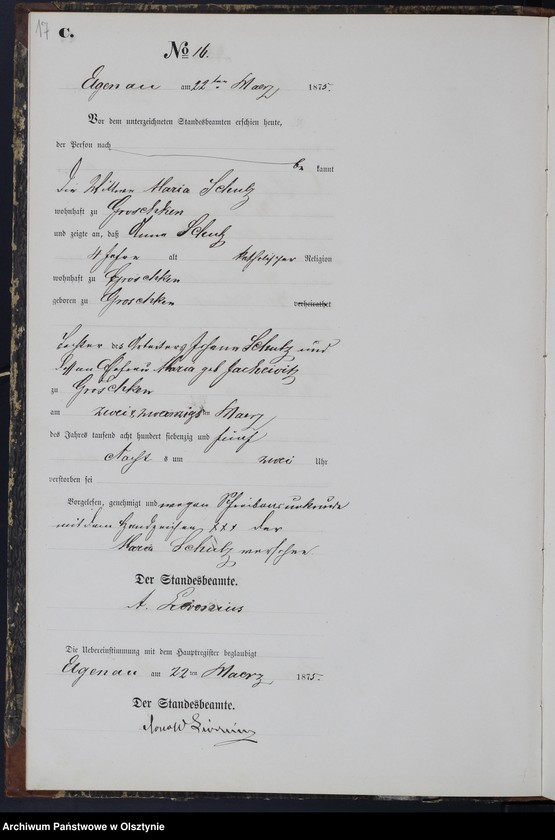 17
C.
No 16.
Elgenau am 22ten Maerz 1875.
Vor dem unterzeichneten Standesbeamten erschien heute,
der Person nach
be kannt
Die Wittwe Maria Schulz
wohnhaft zu Groschken
und zeigte an, daß Anna Schulz
4 Jahre alt katholischer Religion
wohnhaft zu Groschken
geboren zu Groschken verheirathet
Tochter des Johann Schulz und
dessen Ehefrau Maria geb
zu Groschken
am zwei & zwanzigsten Maerz
des Jahres tausend acht hundert siebenzig und fünf
Nacht s um zwei Uhr
verstorben sei
Vorgelesen, genehmigt und wegen Schreibensunkunde
mit dem Handzeichen XXX der
Maria Schulz versehen
Der Standesbeamte.
A.
Die Uebereinstimmung mit dem Hauptregister beglaubigt
Elgenau am 22ten Maerz 1875.
Der Standesbeamte.
Archiwum Państwowe w Olsztynie